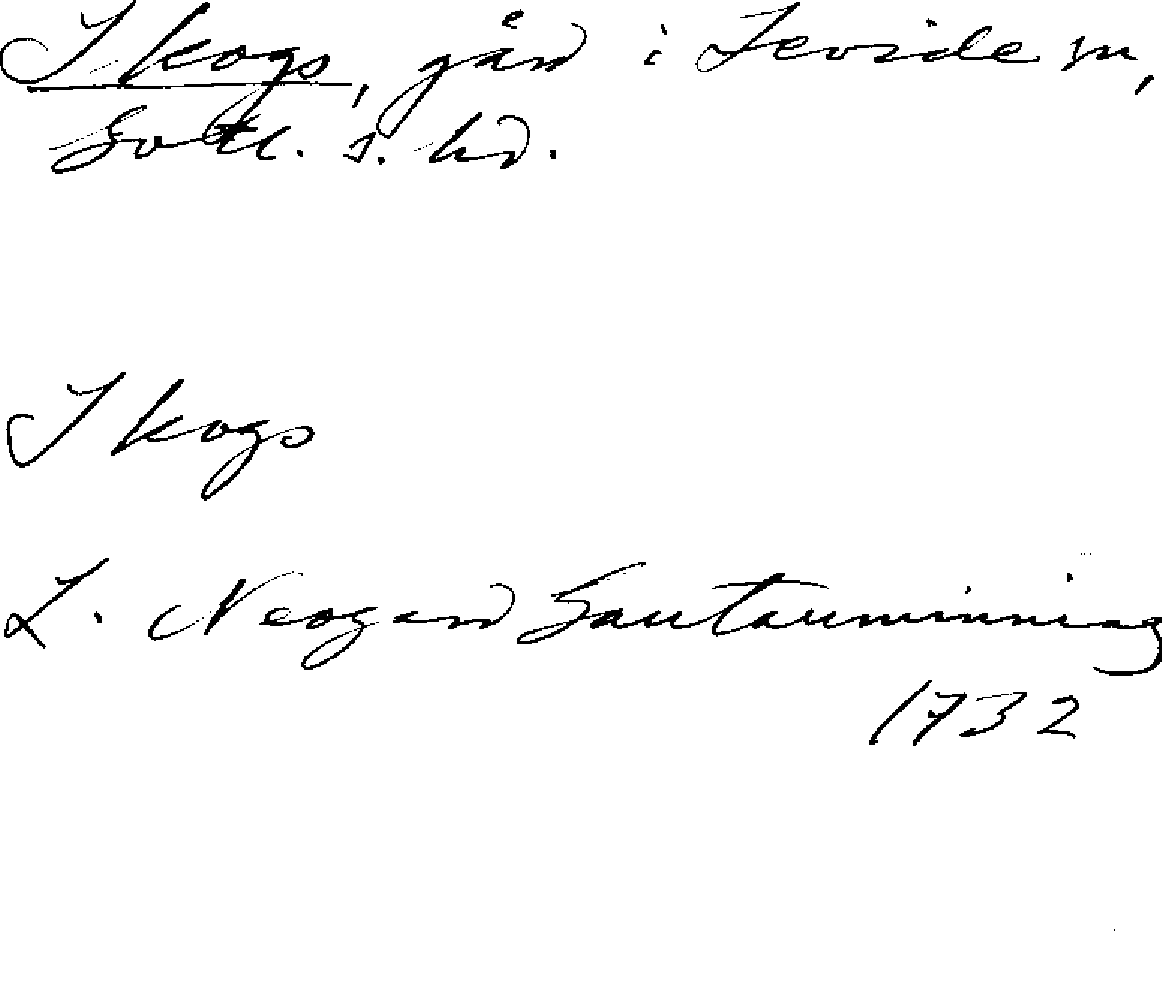 Skogs, gård i Levide sn,
Gotl. s. hd.
Skogs
L. Neogard Gautauminning
1732